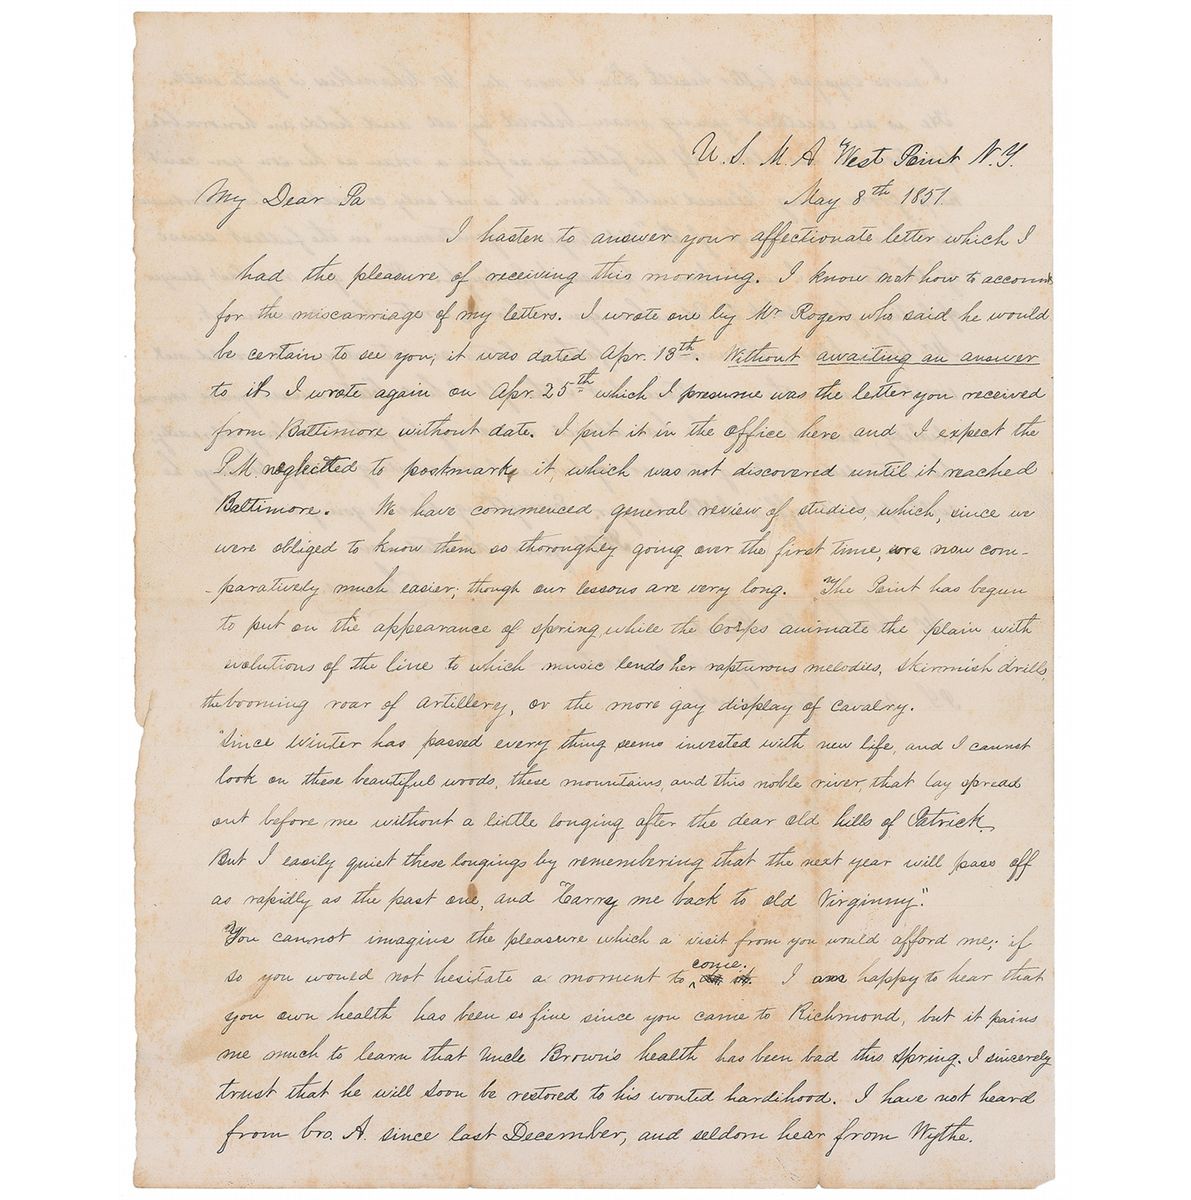 U. S. M. A. West Point N. Y.
May 8th 1851.
My Dear Pa
I hasten to answer your affectionate letter which I
had the pleasure of receiving this morning. I know not how to account
for the miscarriage of my letters. I wrote one by Mr Rogers who said he would
be certain to see you; it was dated Apr. 13th. Without awaiting an answer
to it I wrote again on Apr. 25th which I presume was the letter you received
from Baltimore without date. I put it in the office here and I expect the
P.M. neglected to postmark it, which was not discovered until it reached
Baltimore. We have commenced general review of studies, which, since we
were obliged to know them so thoroughly going over the first time, are now com-
-paratively much easier; though our lessons are very long. The Point has begun
to put on the appearance of spring while the Corps animate the plain with
evolutions of the line to which music lends her rapturous melodies, skirmish drills,
the booming roar of artillery, or the more gay display of cavalry.
Since winter has passed every thing seems invested with new life, and I cannot
look on these beautiful woods, these mountains, and this noble river, that lay spread
out before me without a little longing after the dear old hills of Patrick.
But I easily quiet these longings by remembering that the next year will pass off
as rapidly as the past one, and "Carry me back to old Virginny".
You cannot imagine the pleasure which a visit from you would afford me; if
so you would not hesitate a moment to come. I am happy to hear that
you own health has been so fine since you came to Richmond, but it pains
me much to learn that Uncle Brown's health has been bad this spring. I sincerely
trust that he will soon be restored to his wonted hardihood. I have not heard
from bro. A. since last December, and seldom hear from Wythe.